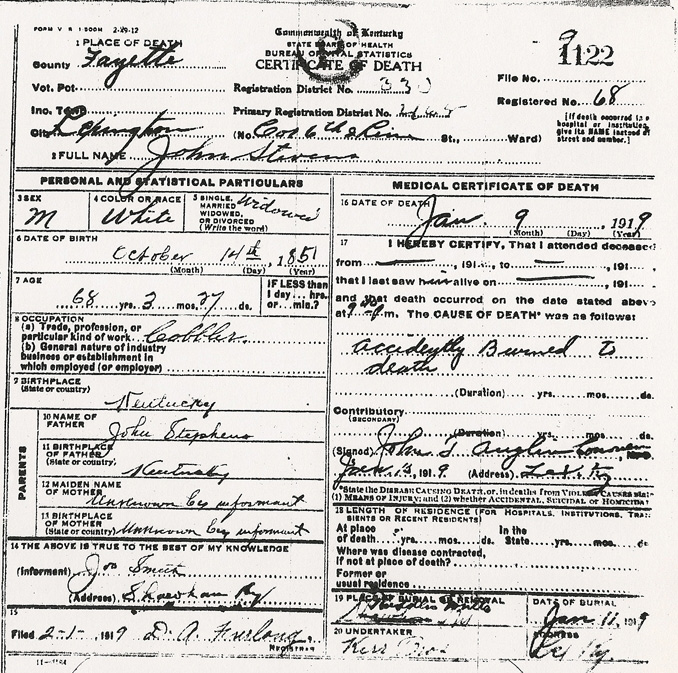 FORM V S 1-500M 2-29-12
1 PLACE OF DEATH
County Fayette
Vot. Pct.
Inc. Town
City Lexington
Commonwealth of Kentucky
STATE BOARD OF HEALTH
BUREAU OF VITAL STATISTICS
CERTIFICATE OF DEATH
Registration District No. 330
Primary Registration District No.
(No. Cor 6th & Lim St., Ward)
9
1122
File No.
Registered No. 68
[If death occurred in a
hospital or institution,
give its NAME instead of
street and number.]
2 FULL NAME John Stevens
PERSONAL AND STATISTICAL PARTICULARS
3 SEX
M
4 COLOR OR RACE
White
5 SINGLE,
MARRIED
WIDOWED,
OR DIVORCED
(Write the word)
Widowed
6 DATE OF BIRTH
October 14th, 1851
(Month) (Day) (Year)
7 AGE
68 yrs. 3 mos. 27 ds.
IF LESS than
1 day... hrs.
or... min.?
8 OCCUPATION
(a) Trade, profession, or
particular kind of work Cobbler.
(b) General nature of industry
business or establishment in
which employed (or employer)
9 BIRTHPLACE
(State or country)
Kentucky
PARENTS
10 NAME OF
FATHER
John Stephens
11 BIRTHPLACE
OF FATHER
(State or country)
Kentucky
12 MAIDEN NAME
OF MOTHER
Unknown by informant
13 BIRTHPLACE
OF MOTHER
(State or country)
Unknown by informant
14 THE ABOVE IS TRUE TO THE BEST OF MY KNOWLEDGE
(Informant) Joe Smith
(Address) Ky
15
Filed 2-1-, 1919 D. A. Furlong
REGISTRAR
11-1184
MEDICAL CERTIFICATE OF DEATH
16 DATE OF DEATH
Jan. 9, 1919
(Month) (Day) (Year)
17 I HEREBY CERTIFY, That I attended deceased
from , 191 , to , 191
that I last saw him alive on , 191
and that death occurred on the date stated above
at m. The CAUSE OF DEATH* was as follows:
Accidently Burned to
death
(Duration) yrs. mos. ds.
Contributory
(SECONDARY)
(Duration) yrs. mos. ds.
(Signed) John T Anglin Coroner
Jan 13, 1919 (Address) Lex Ky
*State the DISEASE CAUSING DEATH, or, in deaths from VIOLENT CAUSES state
(1) MEANS OF INJURY; and (2) whether ACCIDENTAL, SUICIDAL or HOMICIDAL
18 LENGTH OF RESIDENCE (FOR HOSPITALS, INSTITUTIONS, TRAN-
SIENTS OR RECENT RESIDENTS)
At place
of death yrs. mos. ds.
In the
State yrs. mos. ds.
Where was disease contracted,
if not at place of death?
Former or
usual residence
19 PLACE OF BURIAL OR REMOVAL
Wells
DATE OF BURIAL
Jan 11, 1919
20 UNDERTAKER
Kerr Bros
ADDRESS
Lex Ky.